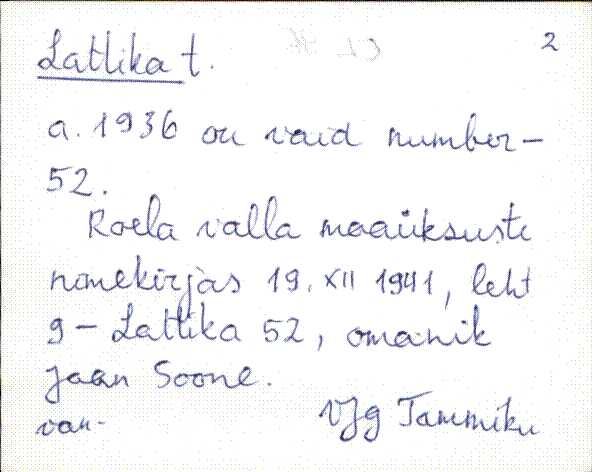 2
Lattika t.
a. 1936 on vaid number-
52.
Roela valla maaüksuste
nimekirjas 19. XII 1941, leht
9 - Lattika 52, omanik
Jaan Soone.
van-
VJg Tammiku